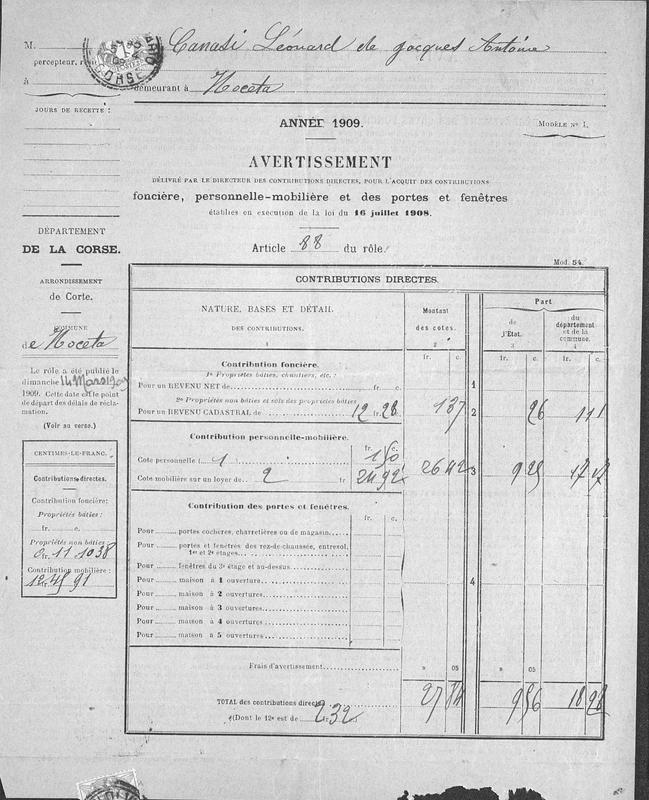 M. Canasi Léonard de Jacques Antoine
percepteur,
à
demeurant à Noceta
CORSE
JOURS DE RECETTE :
ANNÉE 1909.
MODÈLE N° 1.
AVERTISSEMENT
DÉLIVRÉ PAR LE DIRECTEUR DES CONTRIBUTIONS DIRECTES, POUR L'ACQUIT DES CONTRIBUTIONS
foncière, personnelle-mobilière et des portes et fenêtres
établies en exécution de la loi du 16 juillet 1908.
Article 88 du rôle.
DÉPARTEMENT
DE LA CORSE.
ARRONDISSEMENT
de Corte.
COMMUNE
de Noceta
Le rôle a été publié le
dimanche 14 Mars 1909
1909. Cette date est le point
de départ des délais de récla-
mation.
(Voir au verso.)
CENTIMES-LE-FRANC.
Contributions directes.
Contribution foncière:
Propriétés bâties :
fr. c.
Propriétés non bâties
0 fr. 11 1038
Contribution mobilière :
12 45 91
Mod. 54.
CONTRIBUTIONS DIRECTES.
NATURE, BASES ET DÉTAIL
DES CONTRIBUTIONS.
1
Montant
des cotes.
2
Part
de
l'État.
3
du
département
et de la
commune.
4
fr. c. fr. c. fr. c.
Contribution foncière.
1° Propriétés bâties, chantiers, etc. :
Pour un REVENU NET de fr. c. 1
2° Propriétés non bâties et sols des propriétés bâties
Pour un REVENU CADASTRAL de 12 fr. 28 1 37 2 26 1 11
Contribution personnelle-mobilière.
fr. c.
Cote personnelle ( 1 ) 1 50
Cote mobilière sur un loyer de 2 fr 24 92 26 42 3 9 25 17 17
Contribution des portes et fenêtres.
fr. c.
Pour portes cochères, charretières ou de magasin
Pour portes et fenêtres des rez-de-chaussée, entresol,
1er et 2e étages
Pour fenêtres du 3e étage et au-dessus
Pour maison à 1 ouverture 4
Pour maison à 2 ouvertures
Pour maison à 3 ouvertures
Pour maison à 4 ouvertures
Pour maison à 5 ouvertures
Frais d'avertissement » 05 » 05
TOTAL des contributions directes 27 84 9 56 18 28
(Dont le 12e est de 2 32